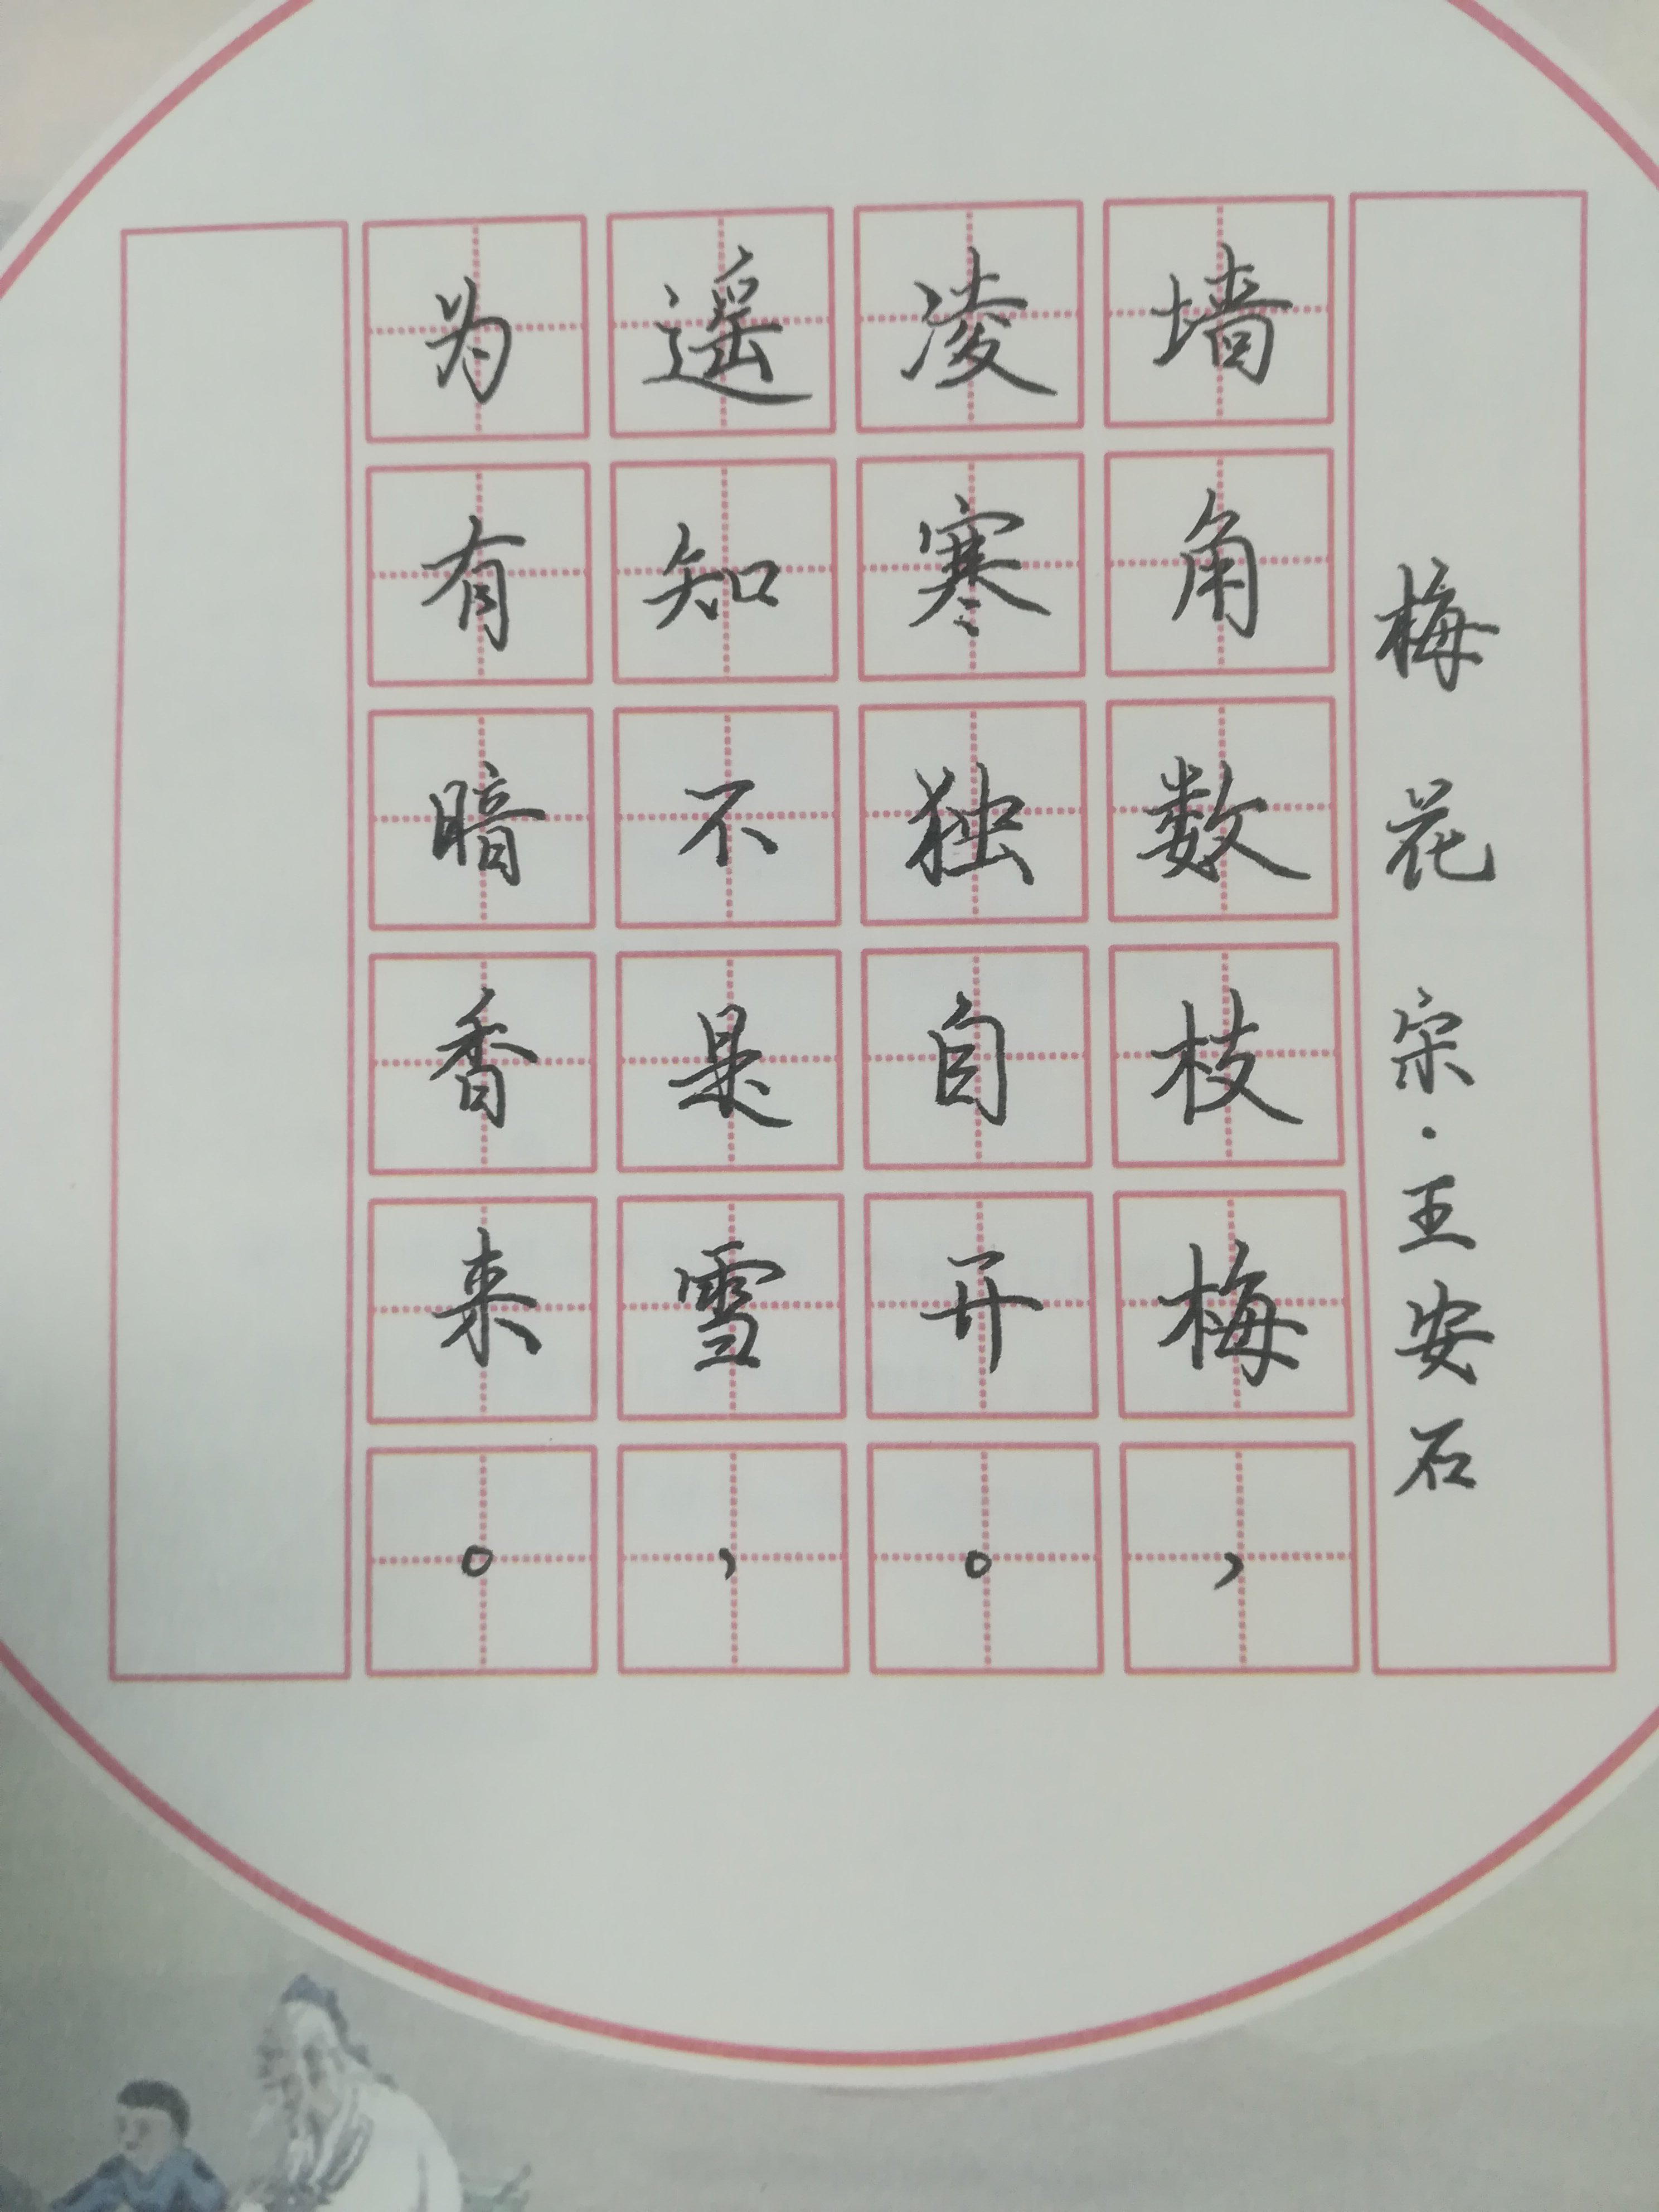 梅花 宋·王安石
墙角数枝梅，
凌寒独自开。
遥知不是雪，
为有暗香来。